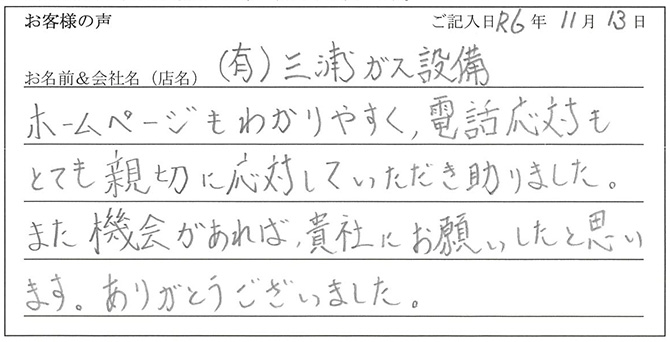 お客様の声 ご記入日R6年 11月 13日
お名前&会社名（店名） (有)三浦ガス設備
ホームページもわかりやすく,電話応対も
とても親切に応対していただき助りました。
また機会があれば,貴社にお願いしたと思い
ます。ありがとうございました。